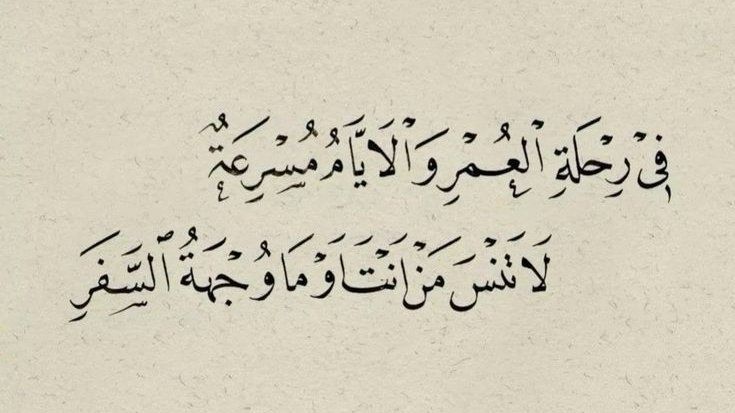 فِي رِحْلَةِ الْعُمْرِ وَالْأَيَّامُ مُسْرِعَةٌ
لَا تَنْسَ مَنْ أَنْتَ أَوْ مَا وُجْهَةُ السَّفَرِ